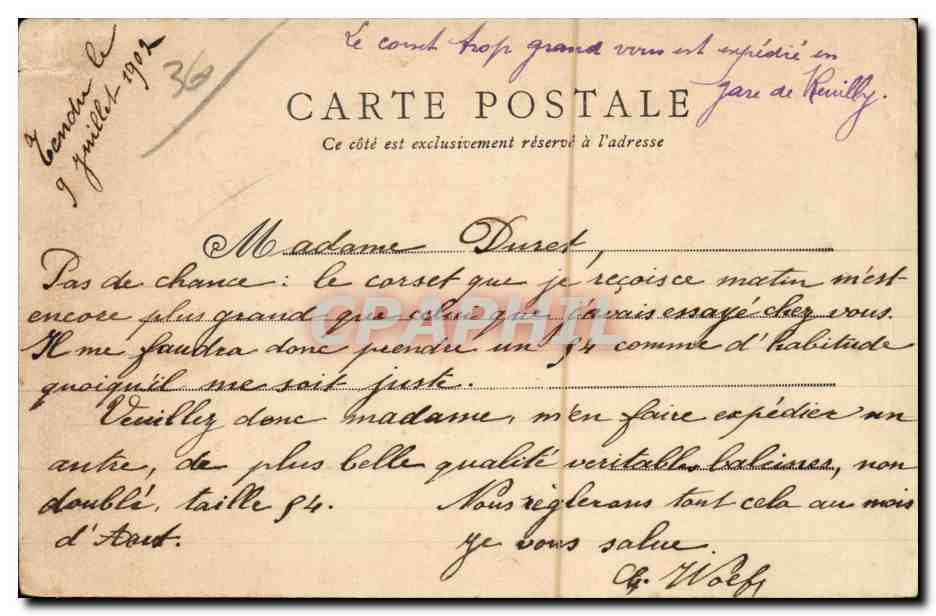 Le corset trop grand vous est expédié en
gare de Reuilly.
36
Tendu le
9 juillet 1902
CARTE POSTALE
Ce côté est exclusivement réservé à l'adresse
Madame Duret,
Pas de chance : le corset que je reçois ce matin m'est
encore plus grand que celui que j'avais essayé chez vous.
Il me faudra donc prendre un 54 comme d'habitude
quoiqu'il me soit juste.
Veuillez donc madame, m'en faire expédier un
autre, de plus belle qualité veritables baleines, non
doublé, taille 54. Nous règlerons tout cela au mois
d'Aout. Je vous salue.
CPAPHIL